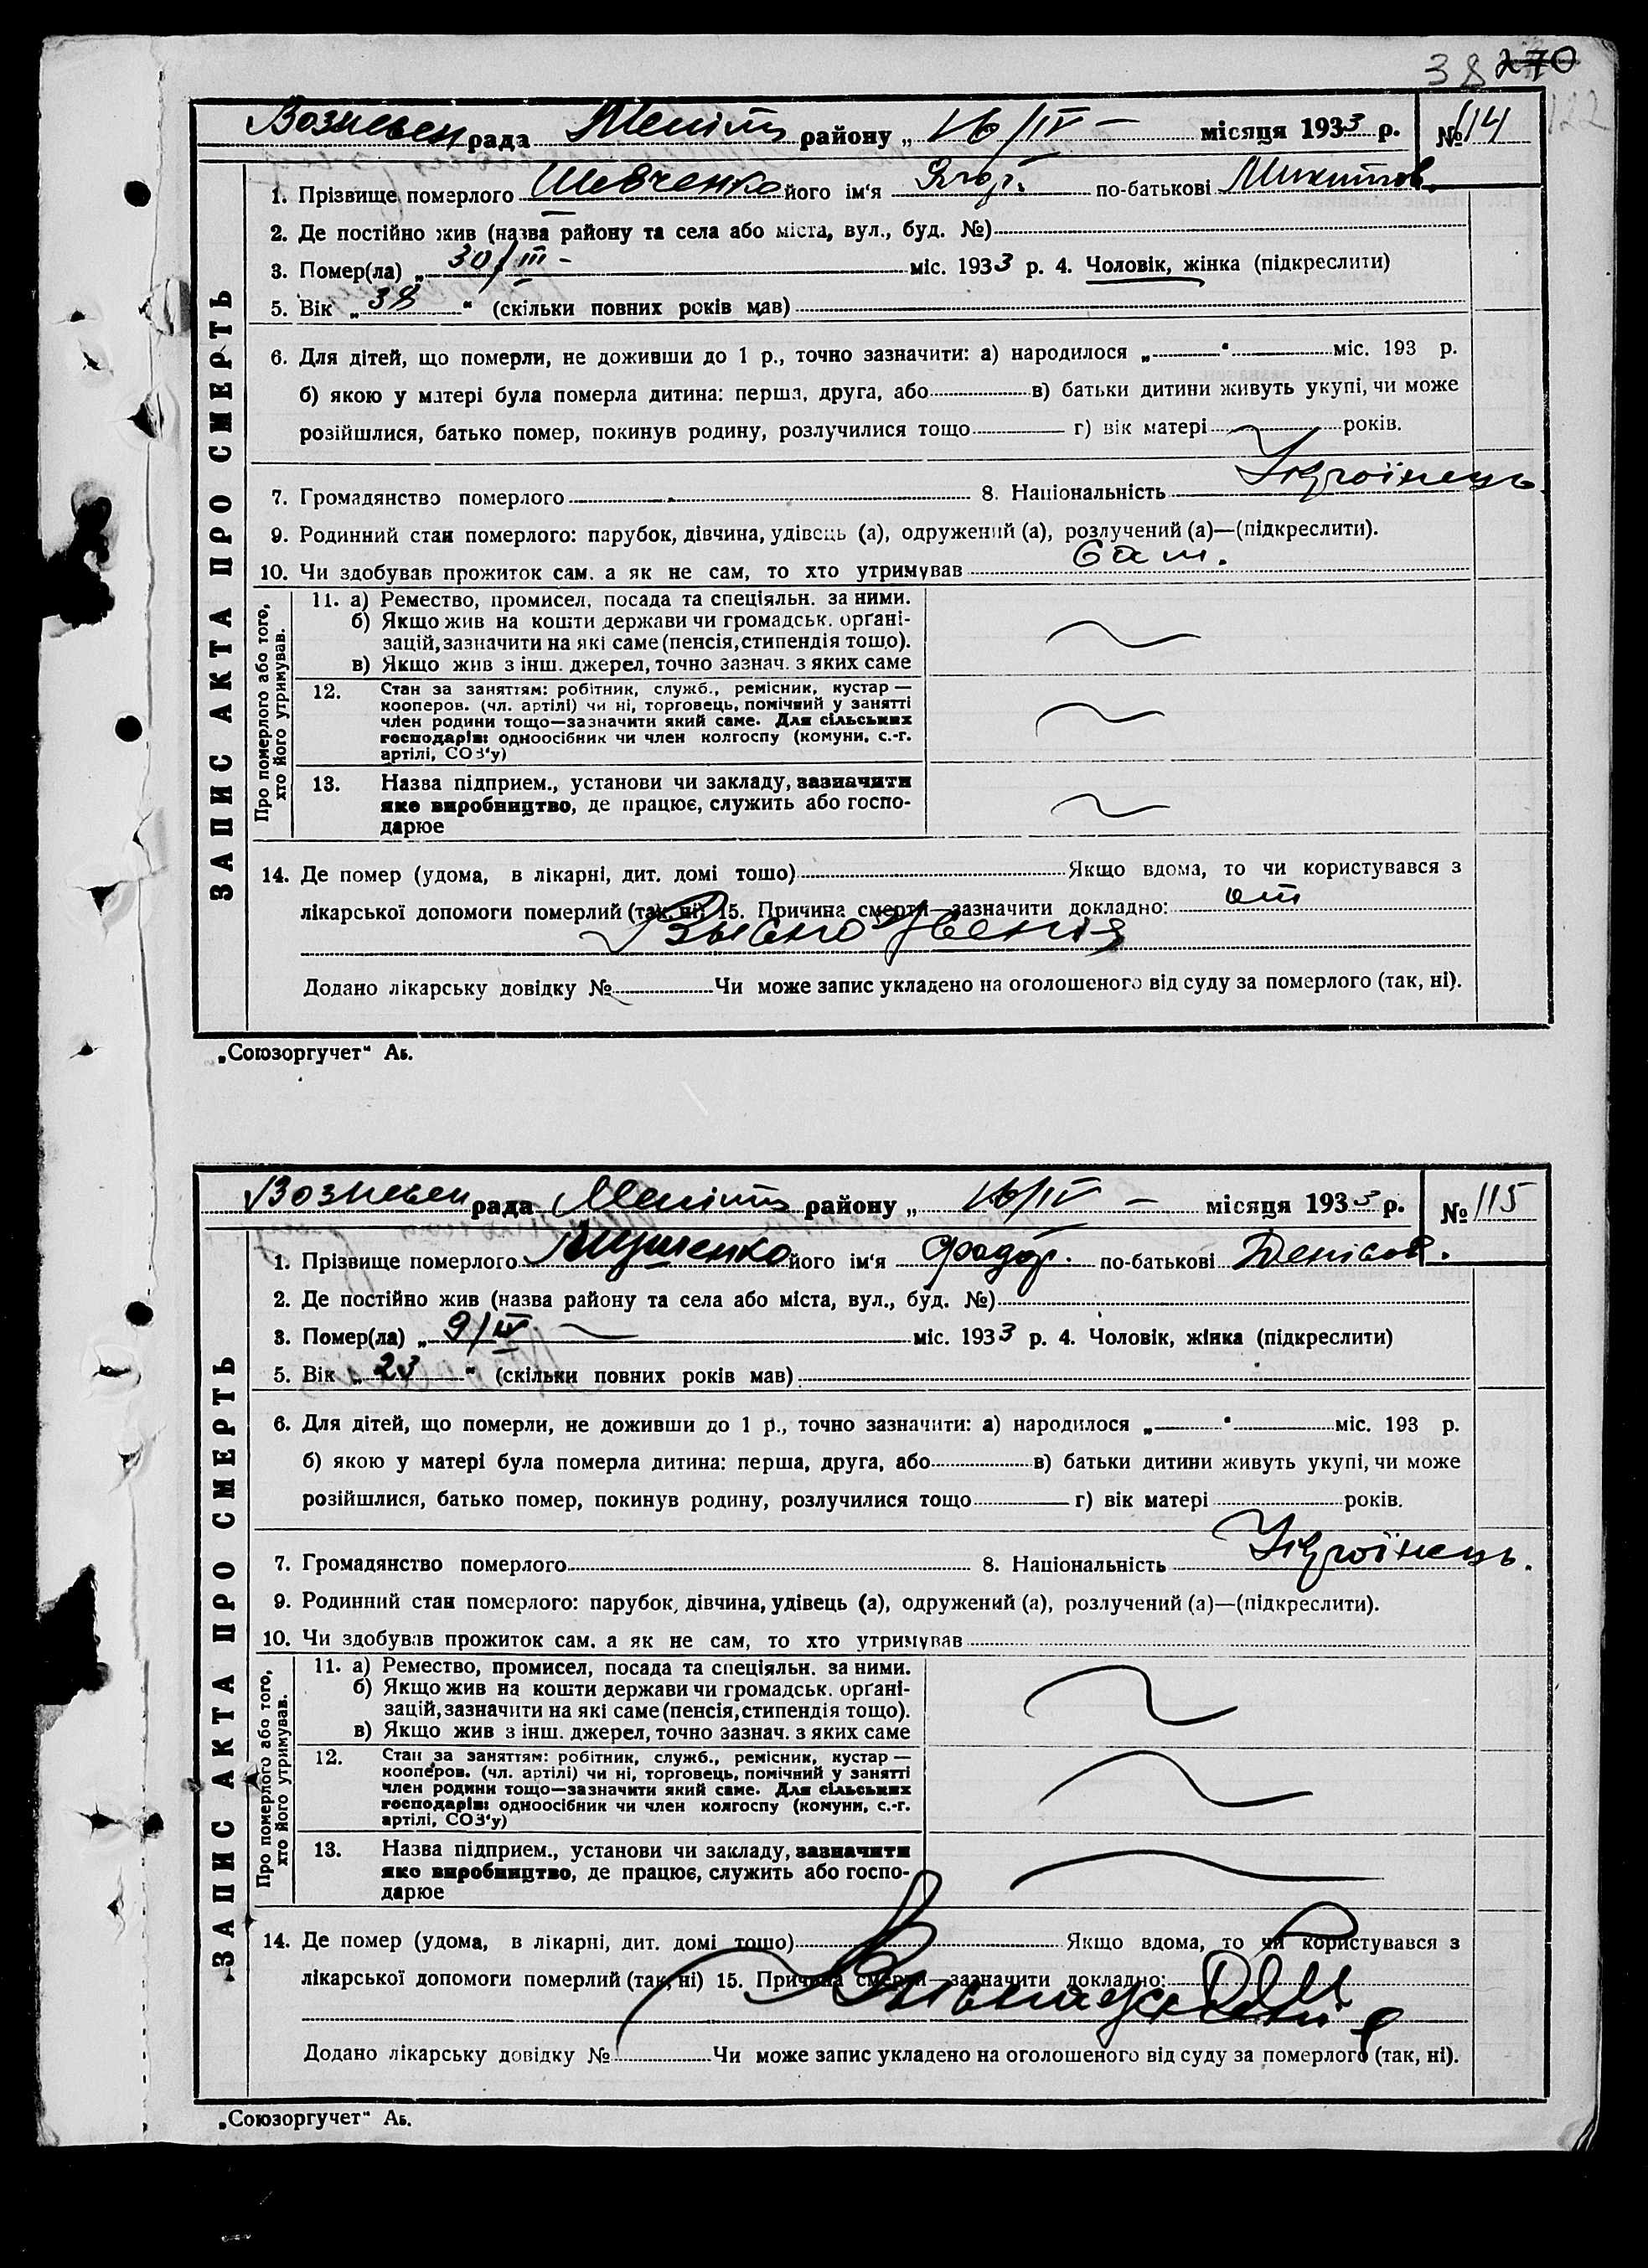 38 270
122
Вознесен рада Меліт району „ 16/IV – місяця 1933 р. № 114
ЗАПИС АКТА ПРО СМЕРТЬ
1. Прізвище померлого Шевченко його ім'я по-батькові Микитов.
2. Де постійно жив (назва району та села або міста, вул., буд. №)
3. Помер(ла) „ 30/III – міс. 1933 р. 4. Чоловік, жінка (підкреслити)
5. Вік „ 38 “ (скільки повних років мав)
6. Для дітей, що померли, не доживши до 1 р., точно зазначити: а) народилося „ “ міс. 193 р.
б) якою у матері була померла дитина: перша, друга, або в) батьки дитини живуть укупі, чи може
розійшлися, батько помер, покинув родину, розлучилися тощо г) вік матері років.
7. Громадянство померлого 8. Національність Українець.
9. Родинний стан померлого: парубок, дівчина, удівець (а), одружений (а), розлучений (а)—(підкреслити).
10. Чи здобував прожиток сам. а як не сам, то хто утримував сам.
Про померлого або того,
хто його утримував.
11. а) Ремество, промисел, посада та спеціяльн. за ними.
б) Якщо жив на кошти держави чи громадськ. орґані-
зацій, зазначити на які саме (пенсія, стипендія тощо).
в) Якщо жив з інш. джерел, точно зазнач. з яких саме
12. Стан за заняттям: робітник, служб., ремісник, кустар —
кооперов. (чл. артілі) чи ні, торговець, помічний у занятті
член родини тощо—зазначити який саме. Для сільських
господарів: одноосібник чи член колгоспу (комуни, с.-г.
артілі, СОЗ'у)
13. Назва підприєм., установи чи закладу, зазначити
яке виробництво, де працює, служить або госпо-
дарює
14. Де помер (удома, в лікарні, дит. домі тощо) Якщо вдома, то чи користувався з
лікарської допомоги померлий (так, ні) 15. Причина смерти—зазначити докладно: от
Додано лікарську довідку № Чи може запис укладено на оголошеного від суду за померлого (так, ні).
„Союзоргучет“ Аб.
Вознесен рада Меліт району „ 16/IV – місяця 1933 р. № 115
ЗАПИС АКТА ПРО СМЕРТЬ
1. Прізвище померлого його ім'я Федор. по-батькові Денісов.
2. Де постійно жив (назва району та села або міста, вул., буд. №)
3. Помер(ла) „ 9/IV міс. 1933 р. 4. Чоловік, жінка (підкреслити)
5. Вік „ 23 “ (скільки повних років мав)
6. Для дітей, що померли, не доживши до 1 р., точно зазначити: а) народилося „ “ міс. 193 р.
б) якою у матері була померла дитина: перша, друга, або в) батьки дитини живуть укупі, чи може
розійшлися, батько помер, покинув родину, розлучилися тощо г) вік матері років.
7. Громадянство померлого 8. Національність Українець.
9. Родинний стан померлого: парубок, дівчина, удівець (а), одружений (а), розлучений (а)—(підкреслити).
10. Чи здобував прожиток сам. а як не сам, то хто утримував
Про померлого або того,
хто його утримував.
11. а) Ремество, промисел, посада та спеціяльн. за ними.
б) Якщо жив на кошти держави чи громадськ. орґані-
зацій, зазначити на які саме (пенсія, стипендія тощо).
в) Якщо жив з інш. джерел, точно зазнач. з яких саме
12. Стан за заняттям: робітник, служб., ремісник, кустар —
кооперов. (чл. артілі) чи ні, торговець, помічний у занятті
член родини тощо—зазначити який саме. Для сільських
господарів: одноосібник чи член колгоспу (комуни, с.-г.
артілі, СОЗ'у)
13. Назва підприєм., установи чи закладу, зазначити
яке виробництво, де працює, служить або госпо-
дарює
14. Де помер (удома, в лікарні, дит. домі тощо) Якщо вдома, то чи користувався з
лікарської допомоги померлий (так, ні) 15. Причина смерти—зазначити докладно:
Додано лікарську довідку № Чи може запис укладено на оголошеного від суду за померлого (так, ні).
„Союзоргучет“ Аб.